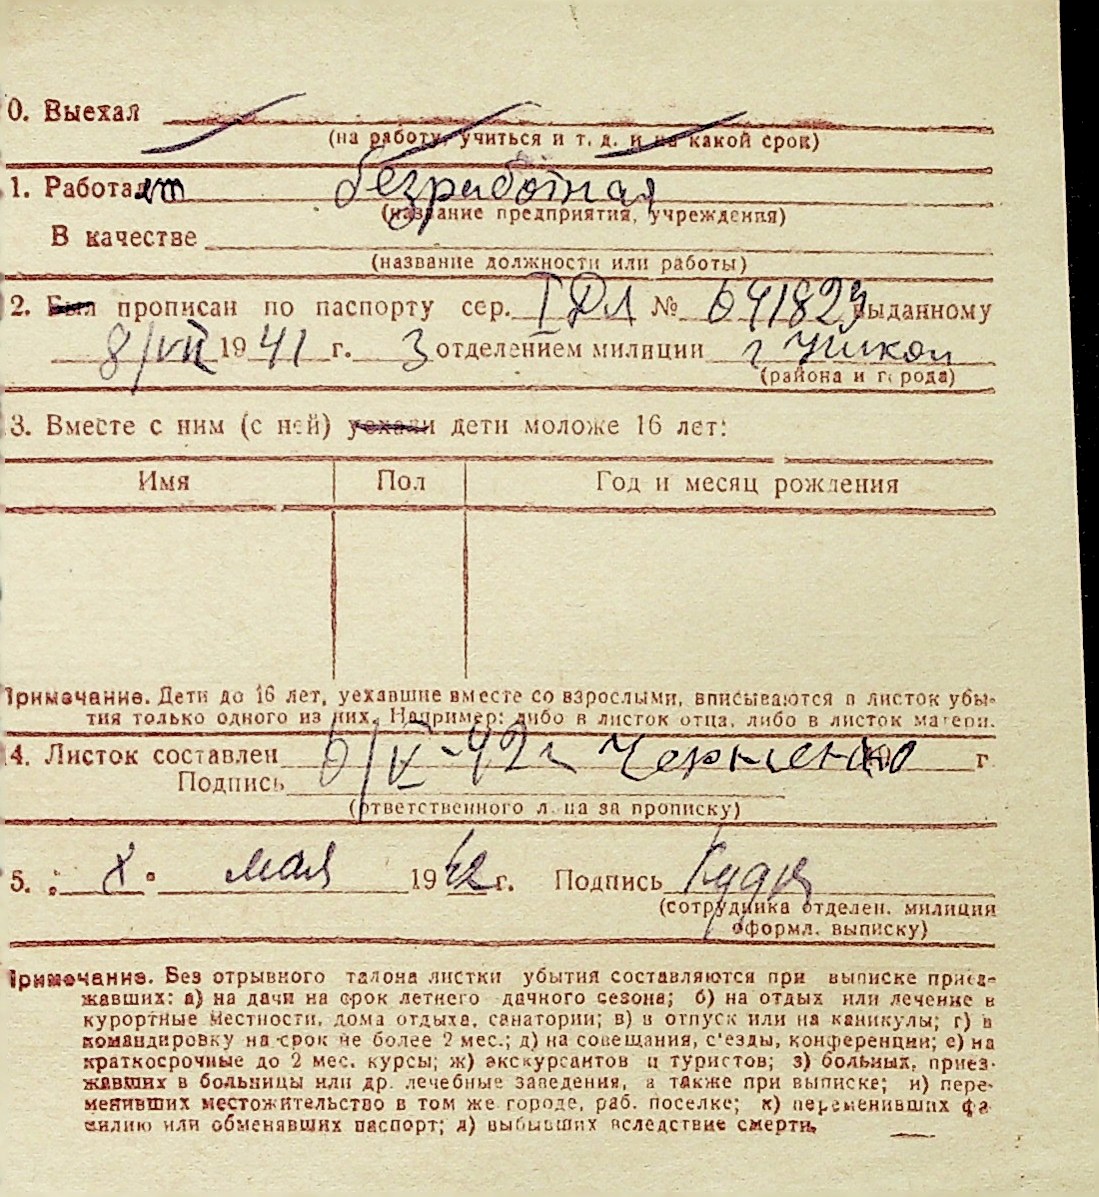 0. Выехал
(на работу, учиться и т. д. и на какой срок)
1. Работает безработная
(название предприятия, учреждения)
В качестве
(название должности или работы)
2. Был прописан по паспорту сер. I ДЛ № 641829 выданному
8/VII 1941 г. 3 отделением милиции г
(района и города)
3. Вместе с ним (с ней) уехали дети моложе 16 лет:
Имя Пол Год и месяц рождения
Примечание. Дети до 16 лет, уехавшие вместе со взрослыми, вписываются в листок убы-
тия только одного из них. Например: либо в листок отца, либо в листок матери.
4. Листок составлен 6/V-42г г
Подпись
(ответственного лица за прописку)
5. " мая 1942 г. Подпись
(сотрудника отделен. милиции
оформл. выписку)
Примечание. Без отрывного талона листки убытия составляются при выписке приез-
жавших: а) на дачи на срок летнего дачного сезона; б) на отдых или лечение в
курортные местности, дома отдыха, санатории; в) в отпуск или на каникулы; г) в
командировку на срок не более 2 мес.; д) на совещания, с'езды, конференции; е) на
краткосрочные до 2 мес. курсы; ж) экскурсантов и туристов; з) больных, приез-
жавших в больницы или др. лечебные заведения, а также при выписке; и) пере-
менивших местожительство в том же городе, раб. поселке; к) переменивших фа
милию или обменявших паспорт; л) выбывших вследствие смерти.